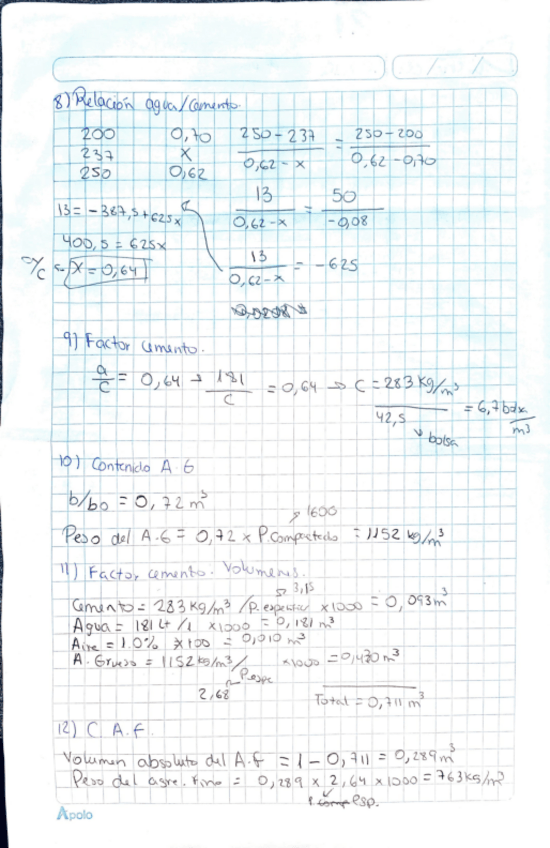 8) Relación agua/cemento.
200 0,70 250-237 / 0,62-x = 250-200 / 0,62-0,70
237 x
250 0,62
13 / 0,62-x = 50 / -0,08
13 = -387,5+625x
400,5 = 625x
13 / 0,62-x = -625
a/c ← x = 0,64
9) Factor cemento.
a/c = 0,64 → 181/c = 0,64 → C = 283 kg/m³ / 42,5 = 6,7 bolx/m³
bolsa
10) Contenido A.G
b/bo = 0,72 m³
1600
Peso del A.G = 0,72 x P.Compactado = 1152 kg/m³
11) Factor cemento. Volumenes.
3,15
Cemento = 283 kg/m³ / P.especifi x1000 = 0,093 m³
Agua = 181 Lt /1 x1000 = 0,181 m³
Aire = 1.0% x100 = 0,010 m³
A. Grueso = 1152 kg/m³/ P.espe x1000 = 0,430 m³
2,68
Total = 0,711 m³
12) C A.F.
Volumen absoluto del A.F = 1-0,711 = 0,289 m³
Peso del agre. Fino = 0,289 x 2,64 x1000 = 763 kg/m³
esp.
Apolo